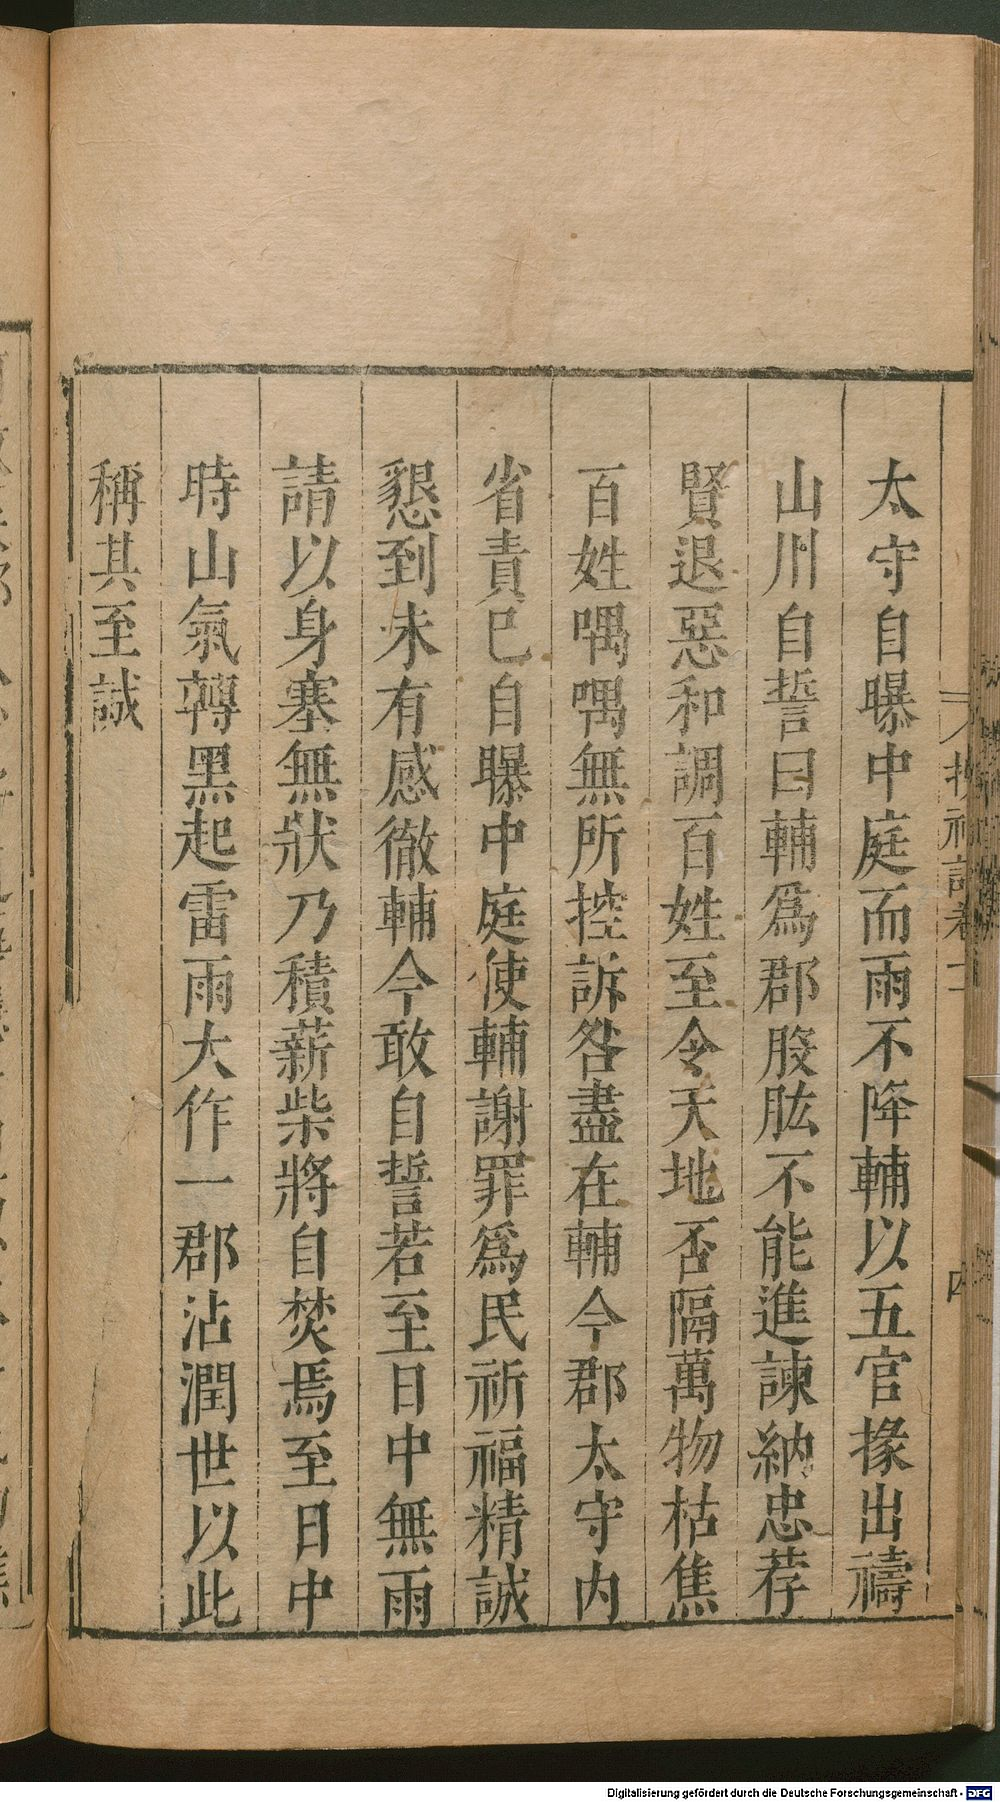 太守自曝中庭而雨不降輔以五官掾出禱
山川自誓曰輔爲郡股肱不能進諫納忠荐
賢退惡和調百姓至令天地否隔萬物枯焦
百姓喁喁無所控訴咎盡在輔今郡太守内
省責巳自曝中庭使輔謝罪爲民祈福精誠
懇到未有感徹輔今敢自誓若至日中無雨
請以身塞無狀乃積薪柴將自焚焉至日中
時山氣轉黑起雷雨大作一郡沾潤世以此
稱其至誠
四
Digitalisierung gefördert durch die Deutsche Forschungsgemeinschaft - DFG